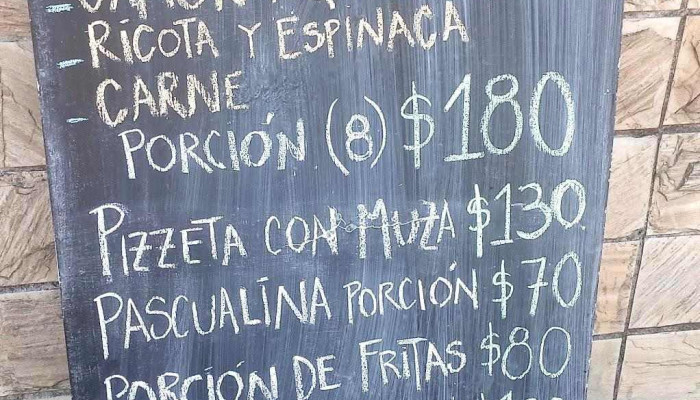 RICOTA Y ESPINACA
CARNE
PORCIÓN (8) $180
PIZZETA CON MUZA $130
PASCUALINA PORCIÓN $70
PORCIÓN DE FRITAS $80